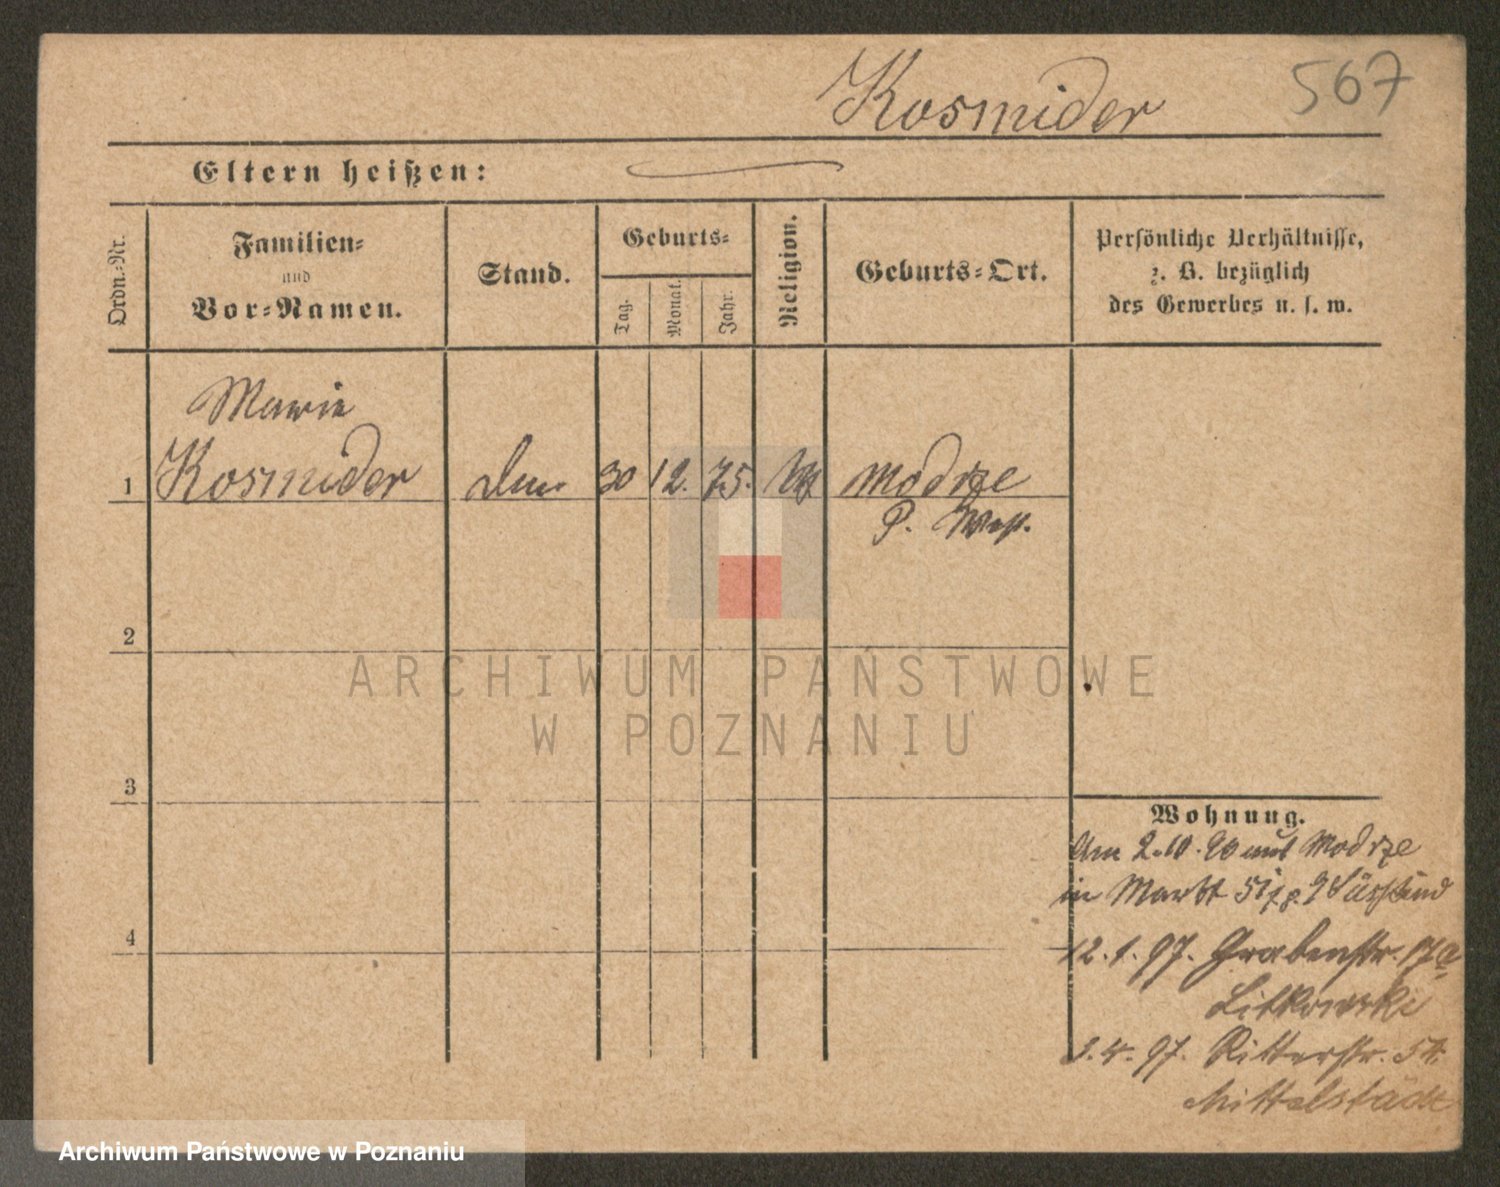 Kosmider
567
Eltern heißen:
Ordn.-Nr.
Familien-
und
Vor-Namen.
Stand.
Geburts-
Tag.
Monat.
Jahr.
Religion.
Geburts-Ort.
Persönliche Verhältnisse,
z. B. bezüglich
des Gewerbes u. s. w.
Marie
1 Kosmider 30 12. 75. Modrze
P. West.
2
3
4
ARCHIWUM PAŃSTWOWE
W POZNANIU
Wohnung.
Am 2.10.96 aus Modrze
in Markt
12.1.97. Grabenstr. 17a
Litkowski
1.4.97. Ritterstr.
Mittelstädt
Archiwum Państwowe w Poznaniu